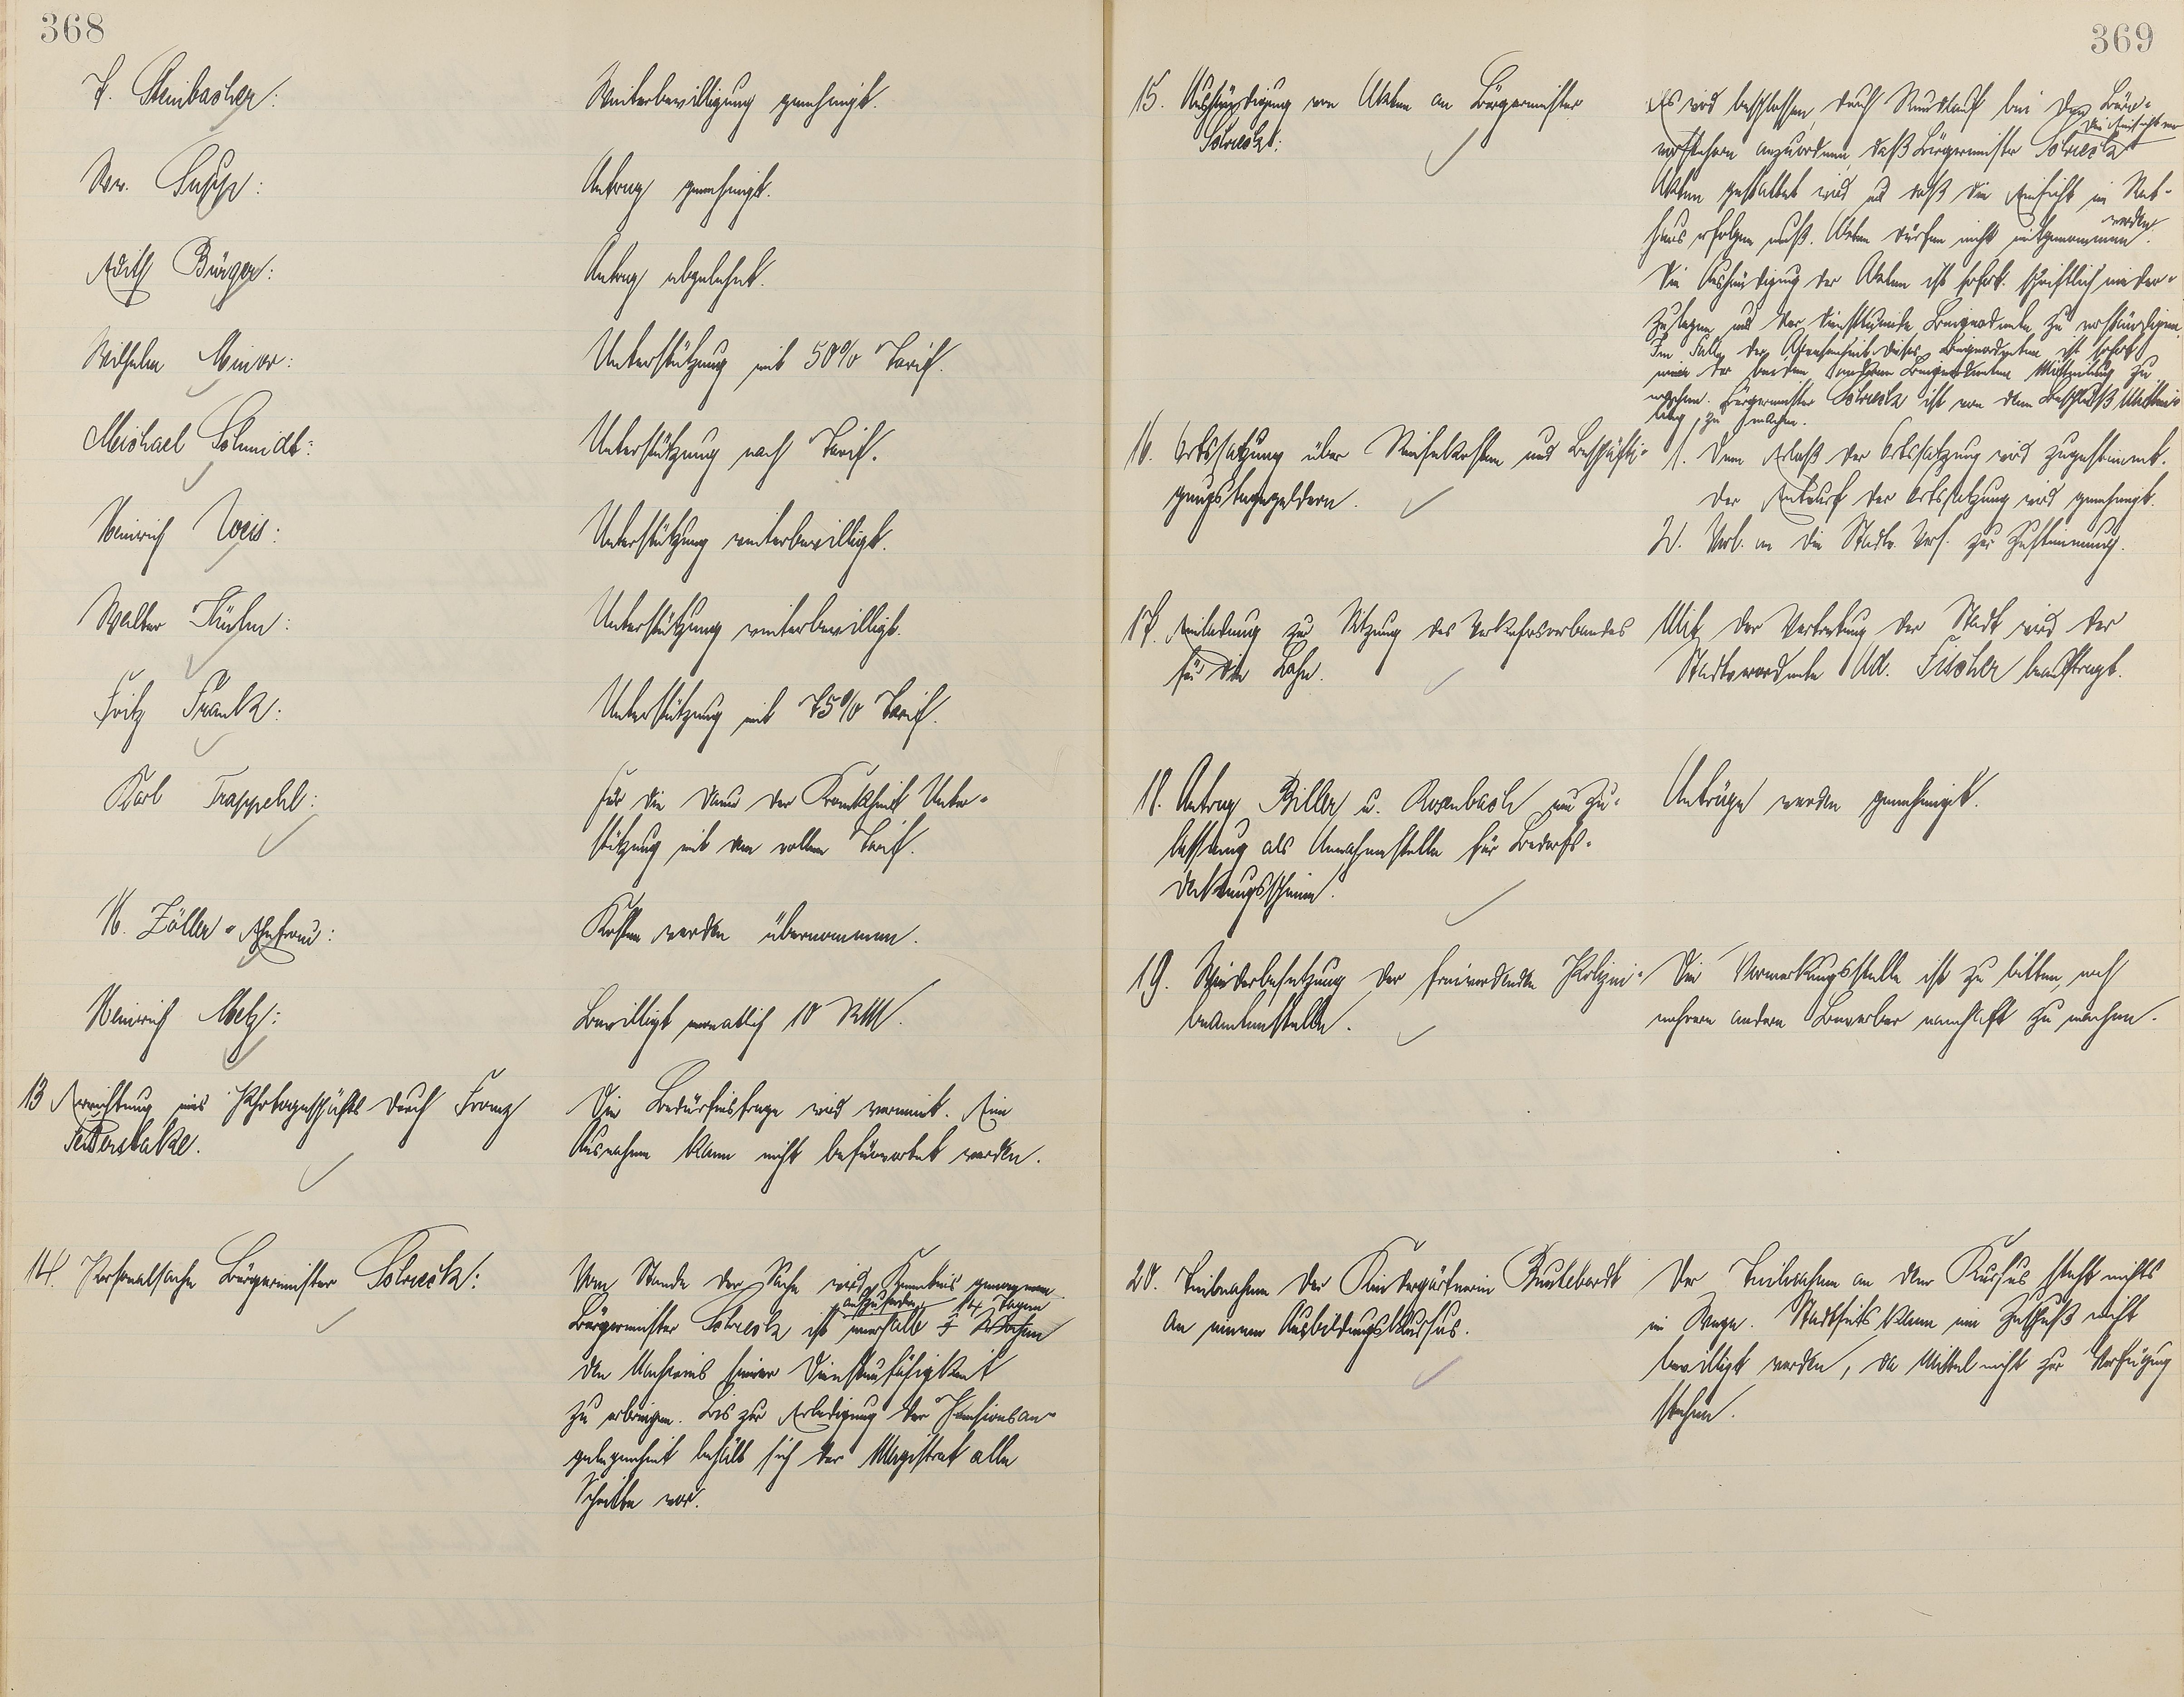 368
P. Steinbacher:
Weiterbewilligung genehmigt.
Ww. Supp:
Antrag genehmigt.
Edith Bürger:
Antrag abgelehnt.
Wilhelm Minor:
Unterstützung mit 50% Tarif.
Michael Schmidt:
Unterstützung nach Tarif.
Heinrich Weis:
Unterstützung weiterbewilligt.
Walter Kuhn:
Unterstützung weiterbewilligt.
Fritz Frank:
Unterstützung mit 75% Tarif.
Karl Trappehl:
Für die Dauer der Krankheit Unter-
stützung mit dem vollen Tarif.
K. Zöller-Ehefrau:
Kosten werden übernommen.
Heinrich Metz:
Bewilligt monatlich 10 RM.
13 Errichtung eines Photogeschäfts durch Franz
Die Bedürfnisfrage wird verneint. Eine
Ausnahme kann nicht befürwortet werden.
14. Personalsache Bürgermeister Schreck:
Vom Stande der Sache wird Kenntnis genommen.
aufzufordern 14 Tagen
Bürgermeister Schreck ist innerhalb Wochen
den Nachweis seiner Dienstunfähigkeit
zu erbringen. Bis zur Erledigung der Pensionsan-
gelegenheit behält sich der Magistrat alle
Schritte vor.
369
15. Aushändigung von Akten an Bürgermeister
Schreck:
Es wird beschlossen, durch Rundlauf bei den Büro-
die Einsicht von
vorstehern anzuordnen, daß Bürgermeister Schreck
Akten gestattet wird und daß die Einsicht im Rat-
werden
haus erfolgen muß. Akten dürfen nicht mitgenommen.
Die Aushändigung der Akten ist sofort schriftlich nieder-
zulegen und der diensttuende Beigeordnete zu verständigen.
Im Falle der Abwesenheit dieses Beigeordneten ist sofort
einem der beiden anderen Beigeordneten Mitteilung zu
machen. Bürgermeister Schreck ist von dem Beschluß Mittei-
lung zu machen.
16. Ortssatzung über Reisekosten und Beschäfti-
gungstagegeldern.
1. Dem Erlaß der Ortssatzung wird zugestimmt.
Der Entwurf der Ortssatzung wird genehmigt.
2. Vorl. an die Stadtv. Vers. zur Zustimmung.
17. Einladung zur Sitzung des Verkehrsverbandes
für die Lahn.
Mit der Vertretung der Stadt wird der
Stadtverordnete Ad. Fischer beauftragt.
18. Antrag Biller u. Rosenbach um Zu-
lassung als Annahmestelle für Bedarfs-
deckungsscheine.
Anträge werden genehmigt.
19. Wiederbesetzung der freiwerdenden Polizei-
beamtenstelle.
Die Vormerkungsstelle ist zu bitten, noch
mehrere andere Bewerber namhaft zu machen.
20. Teilnahme der Kindergärtnerin
an einem Ausbildungskursus.
Der Teilnahme an dem Kursus steht nichts
im Wege. Stadtseits kann ein Zuschuß nicht
bewilligt werden, da Mittel nicht zur Verfügung
stehen.